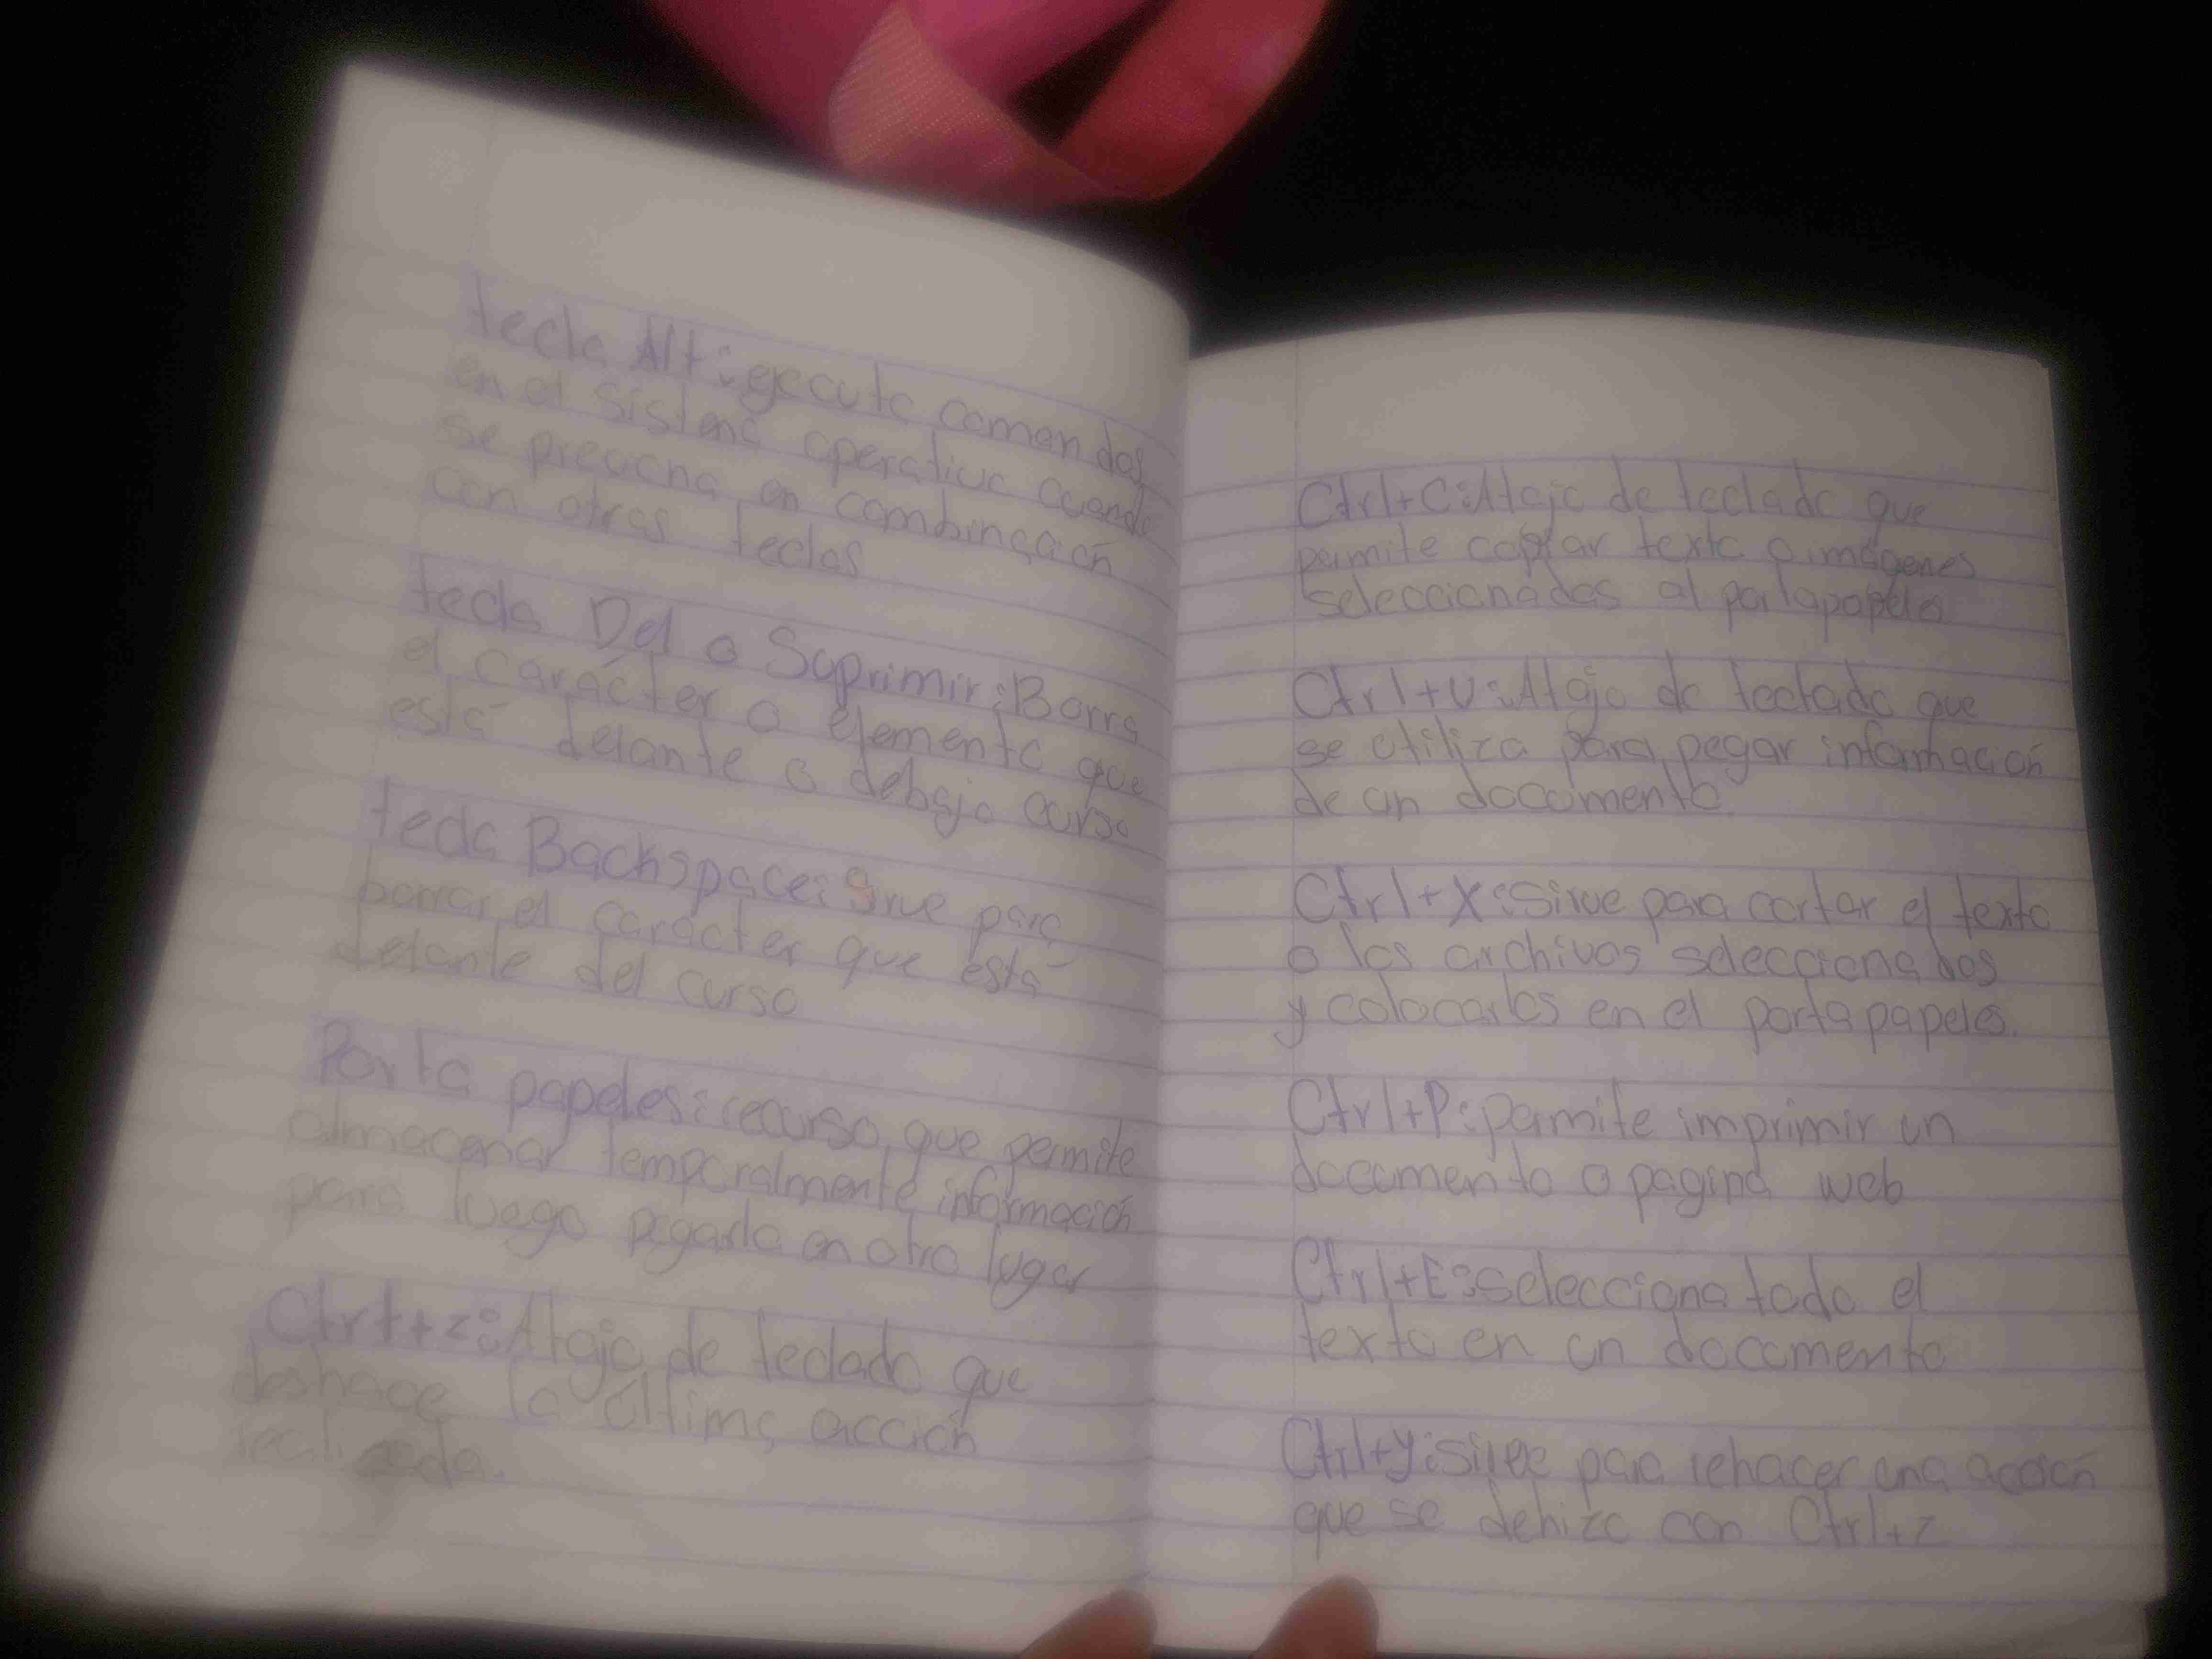 tecla Alt: ejecuta comandos
en el sistema operativo cuando
se preciona en combinación
con otras teclas
tecla Del o Suprimir: Borra
el carácter o elemento que
está delante o debajo curso
tecla Backspace: Sirve para
borrar el carácter que está
delante del curso
Porta papeles: recurso que permite
almacenar temporalmente información
para luego pegarla en otro lugar
Ctrl+z: Atajo de teclado que
deshace la última acción
realizada.
Ctrl+C: Atajo de teclado que
permite copiar texto o imágenes
seleccionadas al portapapeles
Ctrl+V: Atajo de teclado que
se utiliza para pegar información
de un documento.
Ctrl+X: Sirve para cortar el texto
o los archivos seleccionados
y colocarlos en el portapapeles.
Ctrl+P: permite imprimir un
documento o pagina web
Ctrl+E: selecciona todo el
texto en un documento
Ctrl+y: sirve para rehacer una acción
que se dehizo con Ctrl+z